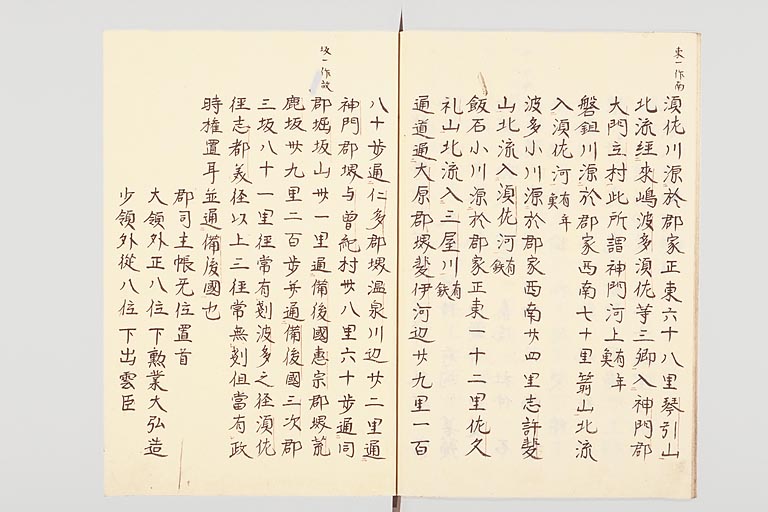 東一作南
湏佐川源於郡家正東六十八里琴引山
北流経來嶋波多湏佐等三郷入神門郡
大門立村此所謂神門河上有年魚
磐鉏川源於郡家西南七十里箭山北流
入湏佐河有年魚
波多小川源於郡家西南廿四里志許斐
山北流入湏佐河有鉄
飯石小川源於郡家正東一十二里佐久
礼山北流入三屋川有鉄
通道通大原郡堺斐伊河辺廿九里一百
坂一作故
八十歩通仁多郡堺温泉川辺廿二里通
神門郡堺与曽紀村廿八里六十歩通同
郡堀坂山廿一里通備後國恵宗郡堺荒
鹿坂卅九里二百歩并通備後國三次郡
三坂八十一里径常有剗波多之径湏佐
径志都美径以上三径常無剗但當有政
時権置耳並通備後國也
郡司主帳无位置首
大領外正八位下勲業大弘造
少領外従八位下出雲臣